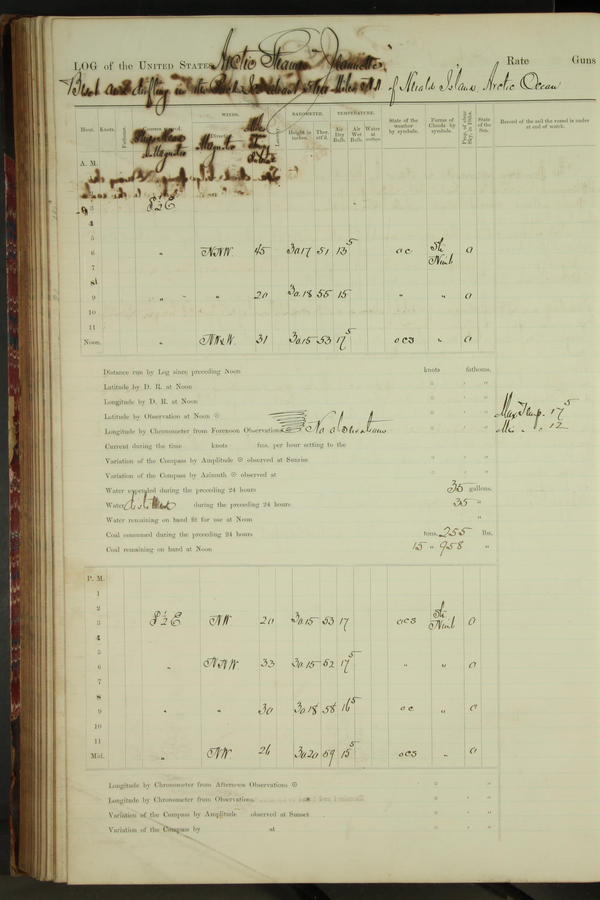 LOG of the UNITED STATES Arctic Steamer Jeannette Rate Guns
Beset and drifting in the of Herald Island, Arctic Ocean
WINDS. BAROMETER. TEMPERATURE.
Hour. Knots. Fathoms. Courses steered. Leeway. Height in inches. Ther. att'd. Air Dry Bulb. Air Wet Bulb. Water at surface. State of the weather by symbols. Forms of Clouds by symbols. Prop. of clear Sky, in 10ths. State of the Sea. Record of the sail the vessel is under at end of watch.
Ship's Head Magnetic Magnetic
A. M.
3 S½E
4
5
6 " NNW. 45 30.17 51 13⁵ oc Str Nimb 0
7
8
9 " " 20 30.18 55 15 " " 0
10
11
Noon. " NW. 31 30.15 53 17⁵ ocs " 0
Distance run by Log since preceding Noon knots fathoms.
Latitude by D. R. at Noon ° ' "
Longitude by D. R. at Noon ° ' "
Latitude by Observation at Noon ☉ ° ' " Max Temp. 17⁵
Longitude by Chronometer from Forenoon Observations No observations ° ' " Min " " 12
Current during the time knots fms. per hour setting to the
Variation of the Compass by Amplitude ☉ observed at Sunrise ° ' "
Variation of the Compass by Azimuth ☉ observed at ° ' "
Water expended during the preceding 24 hours 35 gallons.
Water distilled during the preceding 24 hours 35 "
Water remaining on hand fit for use at Noon "
Coal consumed during the preceding 24 hours tons, 255 lbs.
Coal remaining on hand at Noon 15 " 958 "
P. M.
1
2
3 S½E NW 20 30.15 53 17 ocs Str Nimb 0
4
5
6 " NNW. 33 30.15 52 17⁵ " " 0
7
8
9 " " 30 30.18 58 16⁵ oc " 0
10
11
Mid. " NW 26 30.20 59 15⁵ ocs " 0
Longitude by Chronometer from Afternoon Observations ☉ ° ' "
Longitude by Chronometer from Observations ° ' "
Variation of the Compass by Amplitude observed at Sunset ° ' "
Variation of the Compass by at ° ' "